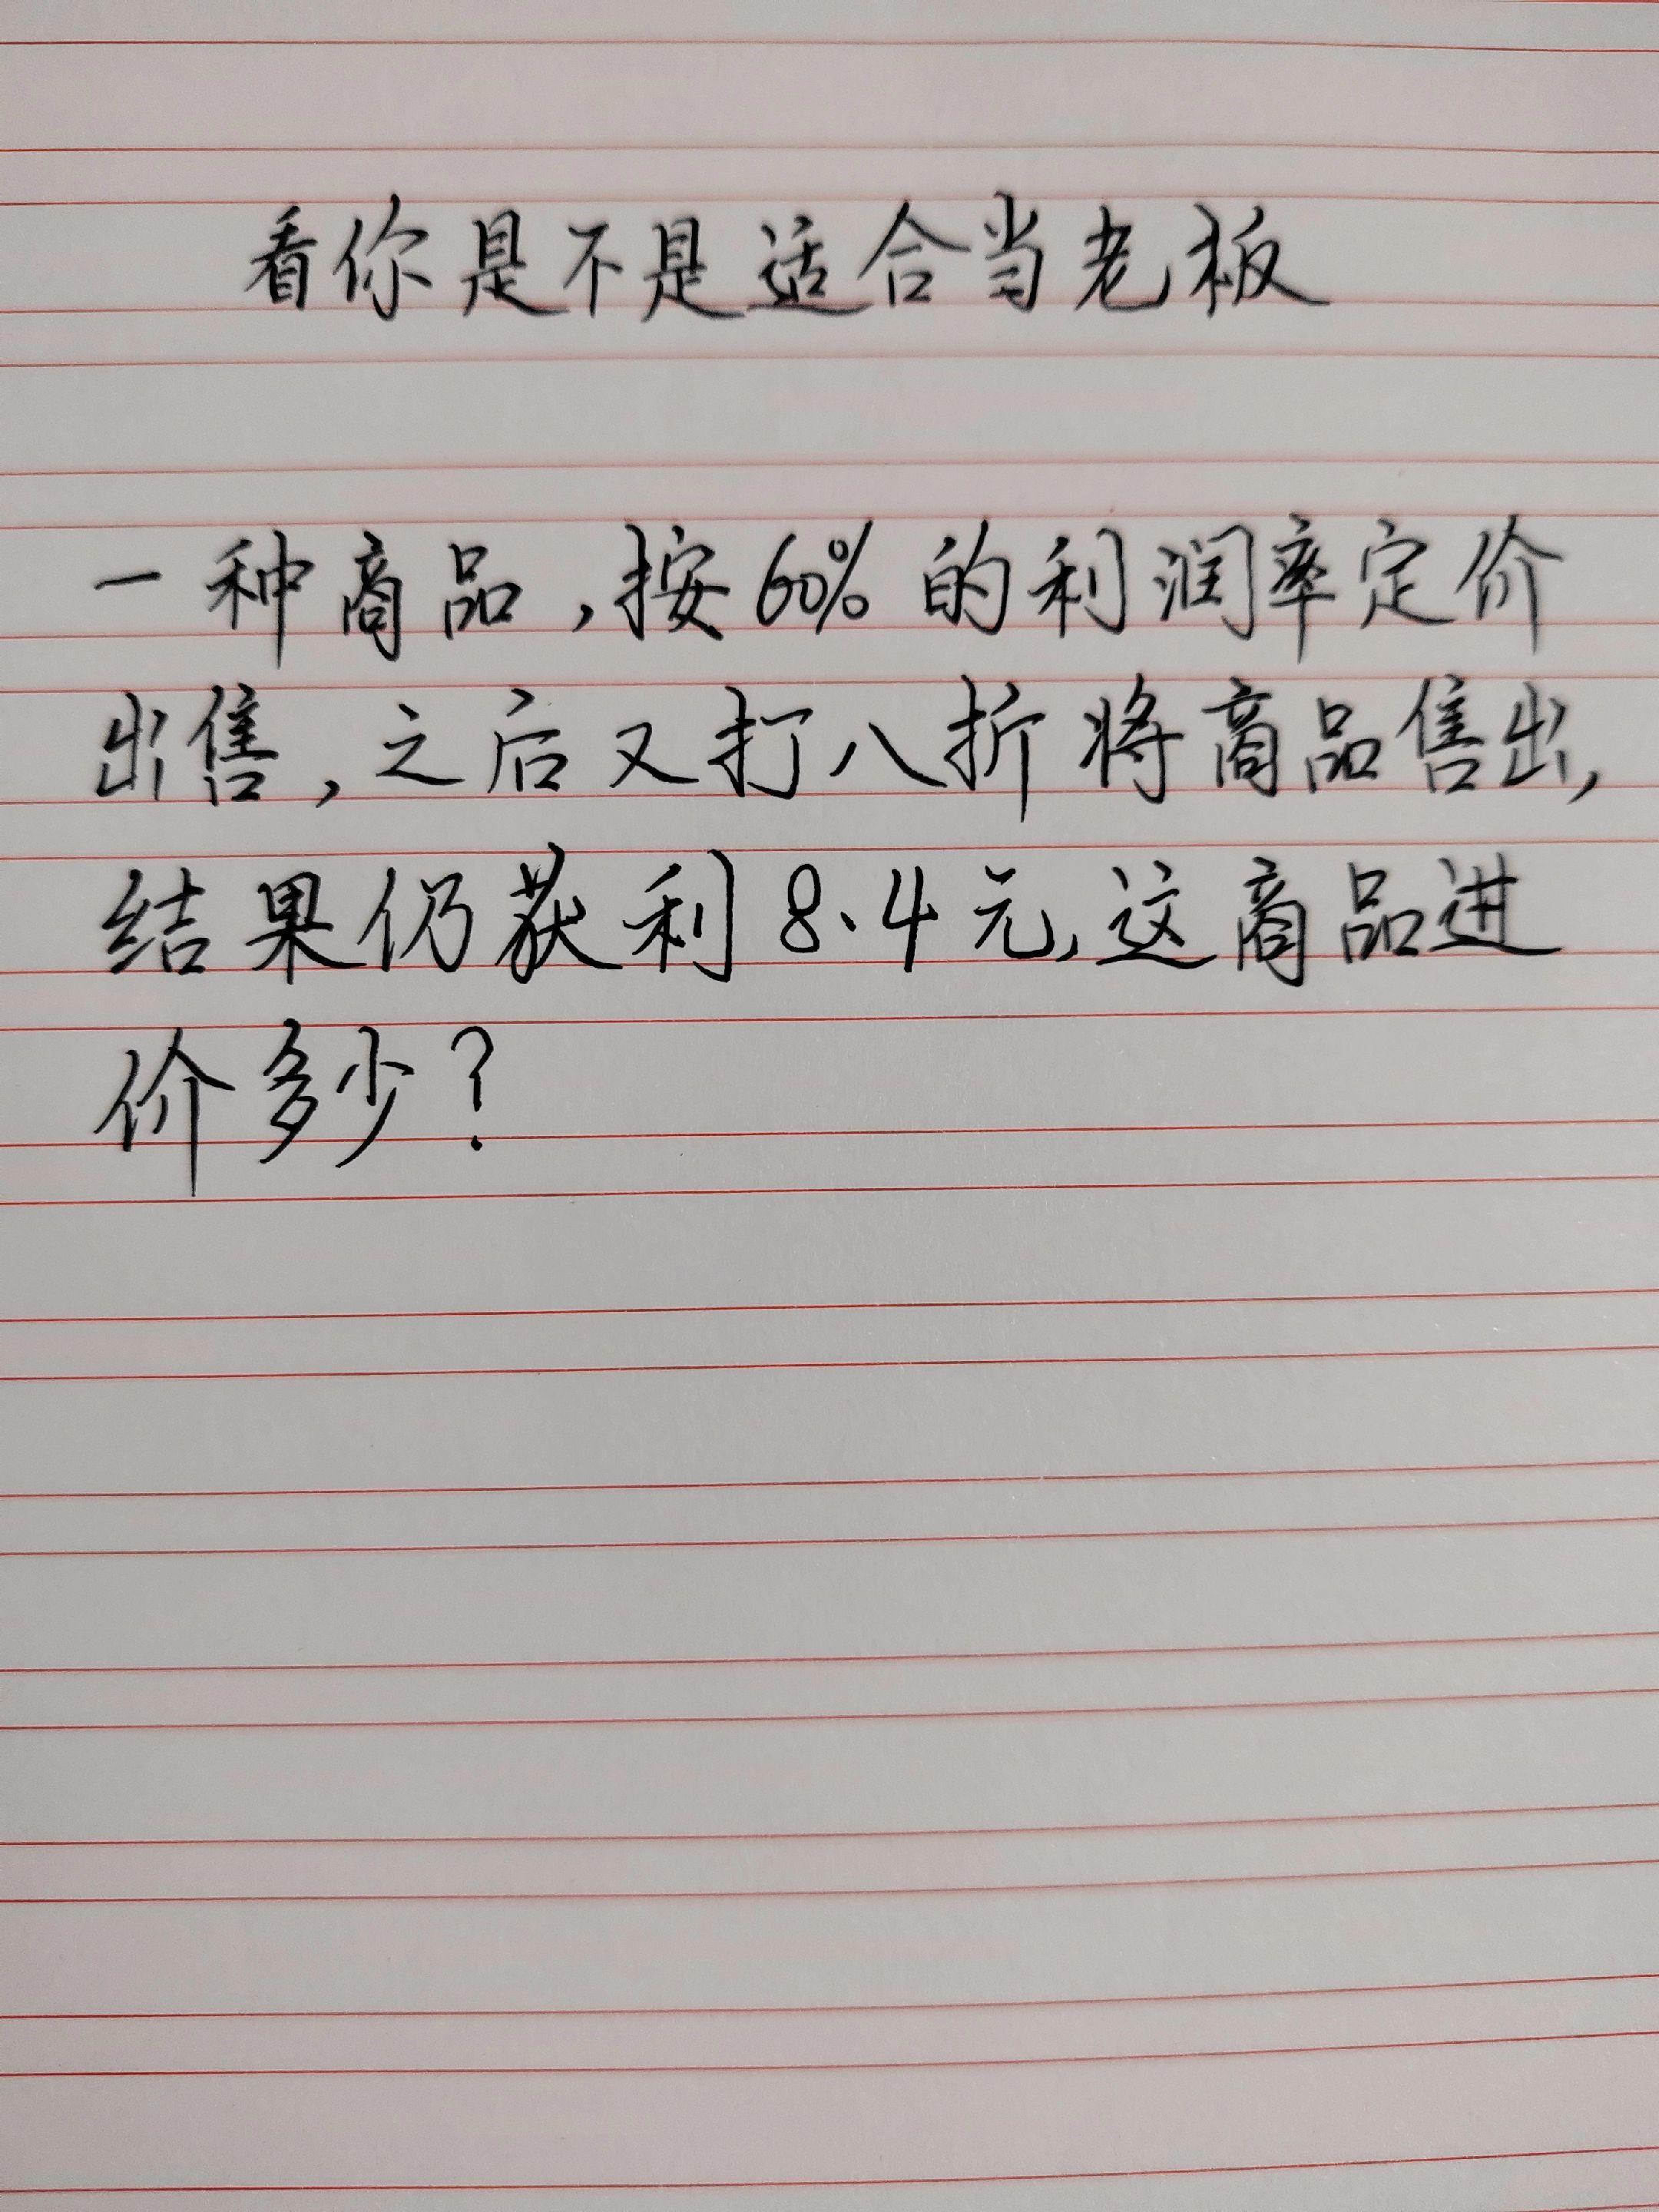 看你是不是适合当老板
一种商品,按60%的利润率定价
出售,之后又打八折将商品售出,
结果仍获利8.4元,这商品进
价多少?